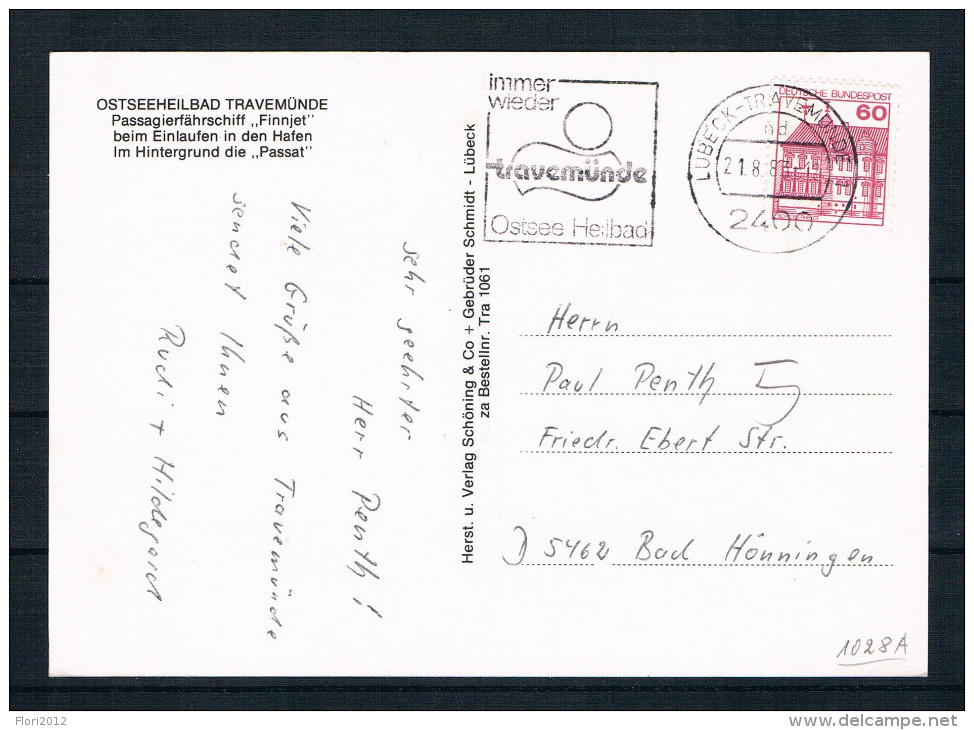 OSTSEEHEILBAD TRAVEMÜNDE
Passagierfährschiff „Finnjet"
beim Einlaufen in den Hafen
Im Hintergrund die „Passat"
sehr geehrter
Herr Penth!
Viele Grüße aus Travemünde
sendet Ihnen
Rudi + Hildegard
Herst. u. Verlag Schöning & Co + Gebrüder Schmidt - Lübeck
za Bestellnr. Tra 1061
immer
wieder
travemünde
Ostsee Heilbad
LÜBECK-TRAVEMÜNDE
nd
21.8.8
2400
DEUTSCHE BUNDESPOST
60
Herrn
Paul Penth 5
Friedr. Ebert Str.
D 5462 Bad Hönningen
1028A
Flori2012
delcampe.net